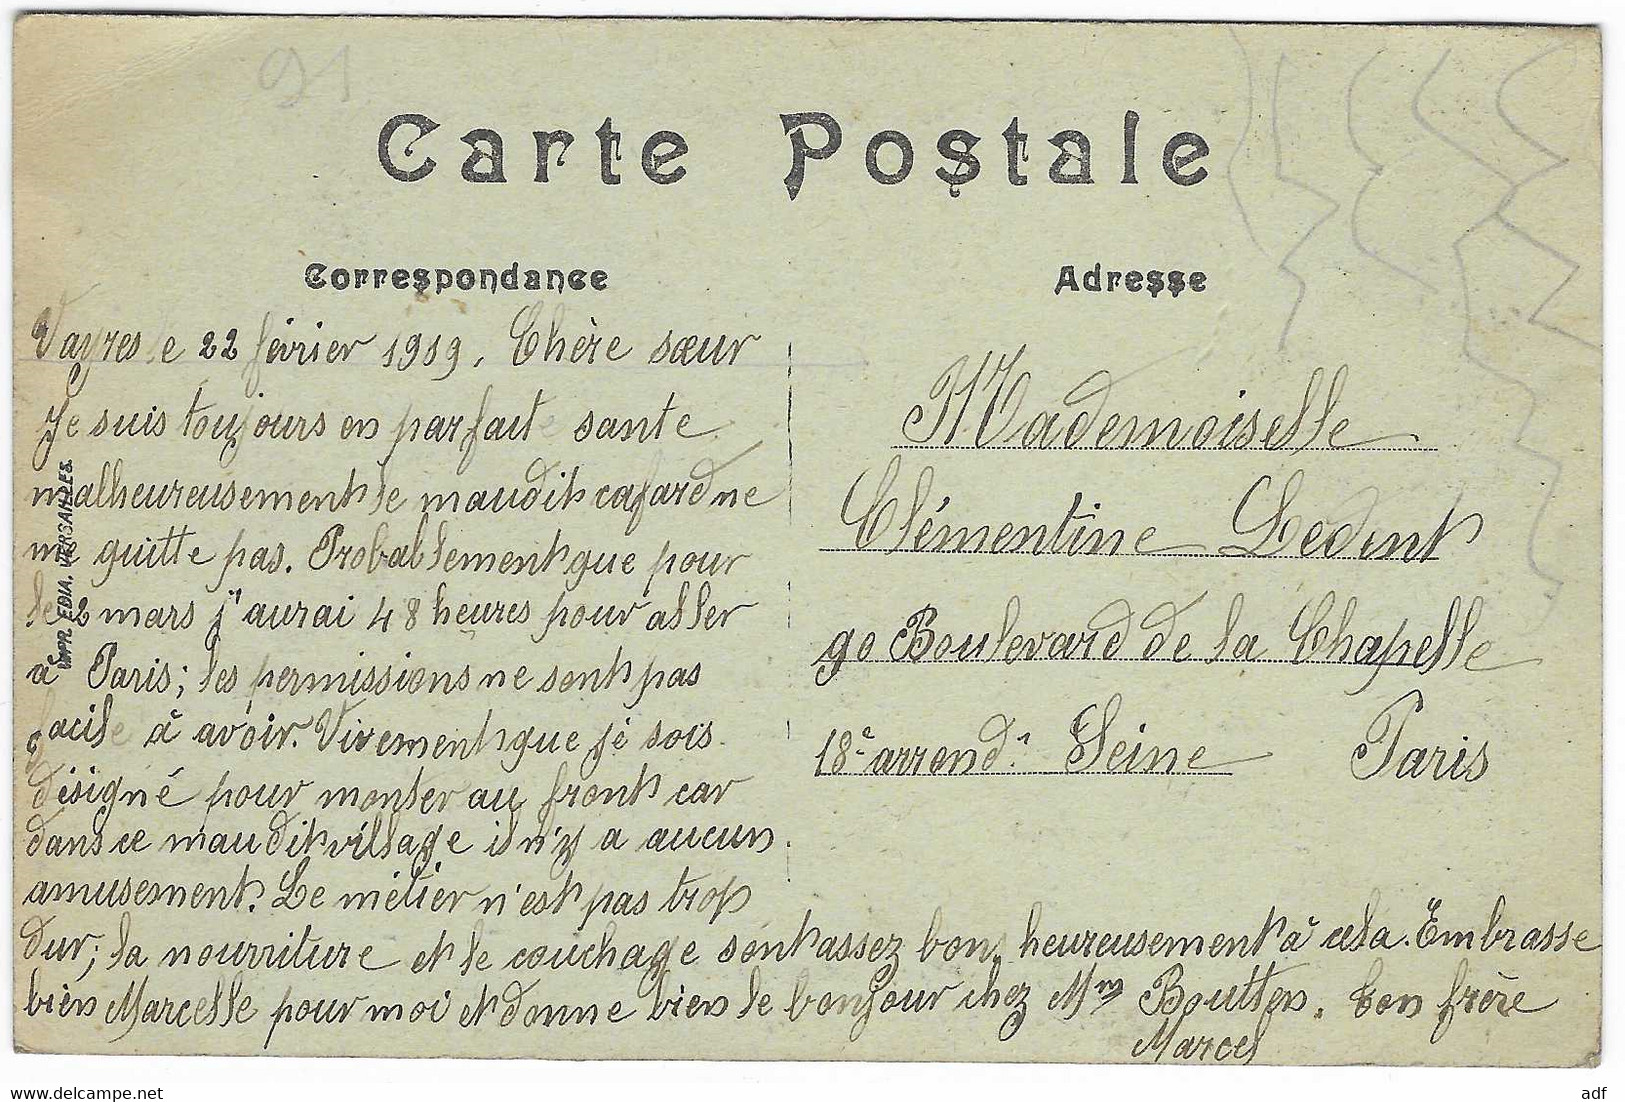 91
Carte Postale
Correspondance
Vayres le 22 février 1919, Chère sœur
Je suis toujours en parfaite santé
malheureusement le maudit cafard ne
me quitte pas. Probablement que pour
le 2 mars j'aurai 48 heures pour aller
à Paris; les permissions ne sont pas
facile à avoir. Vivement que je sois
désigné pour monter au front car
dans ce maudit village il n'y a aucun
amusement. Le métier n'est pas trop
dur; la nourriture et le couchage sont assez bons, heureusement à cela. Embrasse
bien Marcelle pour moi et donne bien le bonjour chez Mm Boutten. Ton frère
Marcel
Adresse
Mademoiselle
Clémentine Ledent
90 Boulevard de la Chapelle
18e arrond. Seine Paris
IMPR. EDIA. VERSAILLES.
www.delcampe.net
adf